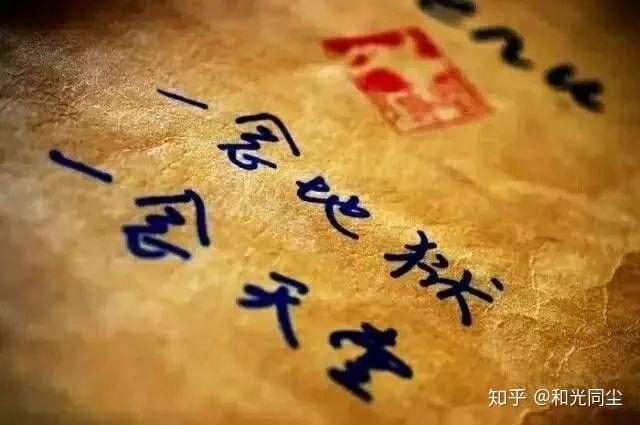 一念地狱
一念天堂
知乎 @和光同尘